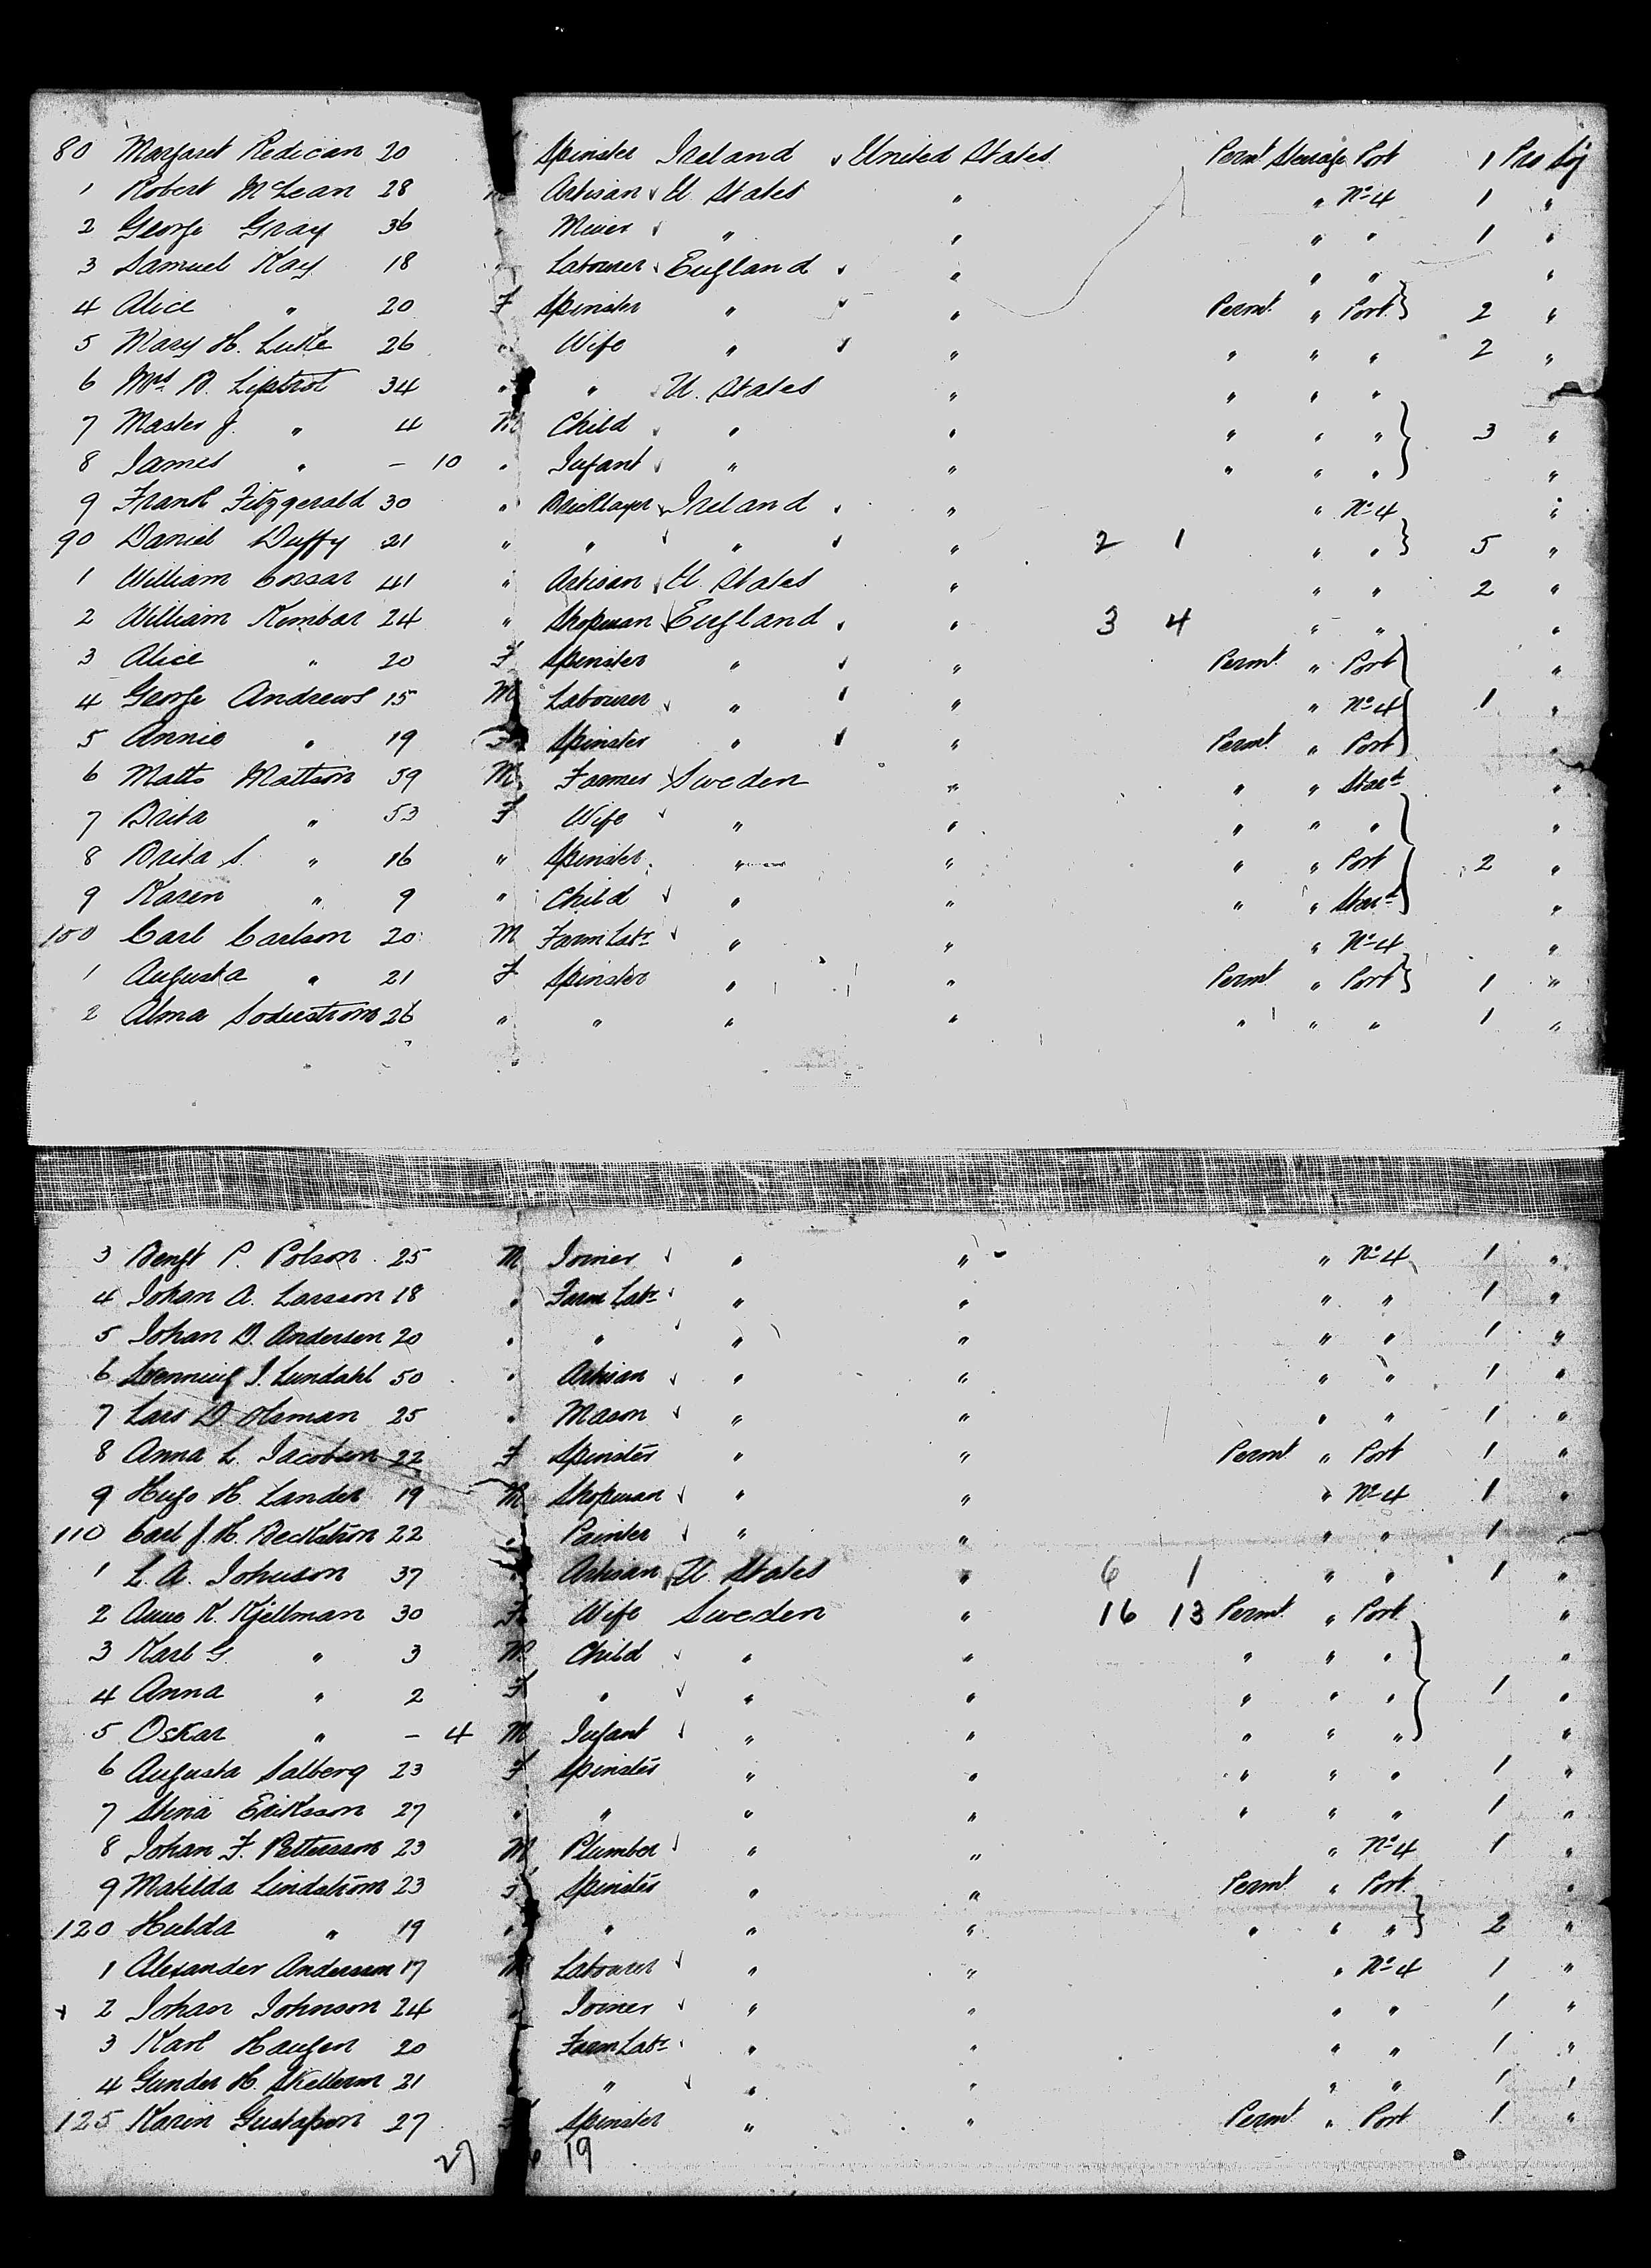 80 Margaret Redican 20 Spinster Ireland United States Permt Steerage Port 1 Pas
1 Robert McLean 28 Artisan U States " " No 4 1 "
2 George Gray 36 " Miner " " " " 1 "
3 Samuel Kay 18 " Labourer England " " " "
4 Alice " 20 F Spinster " " Permt " Port } 2 "
5 Mary H. Luke 26 " Wife " " " " " 2 "
6 Mrs B. Liptrot 34 " " U. States " " " "
7 Master J. " 4 M Child " " " " " } 3 "
8 James " – 10 " Infant " " " " " "
9 Frank Fitzgerald 30 " Bricklayer Ireland " " No 4 "
90 Daniel Duffy 21 " " " " 2 1 " " } 5 "
1 William Cossar 41 " Artisan U. States " " " 2 "
2 William Kimbar 24 " Shopman England " 3 4 " " "
3 Alice " 20 F Spinster " " Permt " Port "
4 George Andrews 15 M Labourer " " " No 4 } 1 "
5 Annie " 19 F Spinster " " Permt " Port "
6 Matts Mattson 59 M Farmer Sweden " " " Starbd "
7 Brita " 53 F Wife " " " " " "
8 Brita S. " 16 " Spinster " " " " Port } 2 "
9 Karen " 9 " Child " " " " Starbd "
100 Carl Carlson 20 M Farm Labr " " " No 4 "
1 Augusta " 21 F Spinster " " Permt " Port } 1 "
2 Alma Soderstrom 26 " " " " " " " 1 "
3 Bengt P. Polson 25 M Joiner " " " No 4 1 "
4 Johan A. Larsson 18 " Farm Labr " " " " 1 "
5 Johan D. Andersen 20 " " " " " " 1 "
6 J. Lundahl 50 " Artisan " " " " 1 "
7 Lars D Olsman 25 " Mason " " " " 1 "
8 Anna L. Jacobsen 22 F Spinster " " Permt " Port 1 "
9 Hugo H. Lander 19 M Shopman " " " No 4 1 "
110 Carl J. H. Beckström 22 " Painter " " " " 1 "
1 L. A. Johnson 37 " Artisan U. States " 6 1 " " 1 "
2 Anna K. Kjellman 30 F Wife Sweden " 16 13 Permt " Port "
3 Karl G. " 3 M Child " " " " " "
4 Anna " 2 F " " " " " " } 1 "
5 Oskar " – 4 M Infant " " " " " "
6 Augusta Salberg 23 F Spinster " " " " " 1 "
7 Stina Eriksson 27 " " " " " " " 1 "
8 Johan F. Pettersson 23 M Plumber " " " No 4 1 "
9 Matilda Lindström 23 F Spinster " " Permt " Port "
120 Hulda " 19 " " " " " " " } 2 "
1 Alexander Andersson 17 M Labourer " " " No 4 1 "
2 Johan Johnson 24 " Joiner " " " " 1 "
3 Karl Haugen 20 Farm Labr " " " " 1 "
4 Gunder H. 21 " " " " " 1 "
125 Karin Gustafson 27 F Spinster " " Permt " Port 1 "
27 6 19